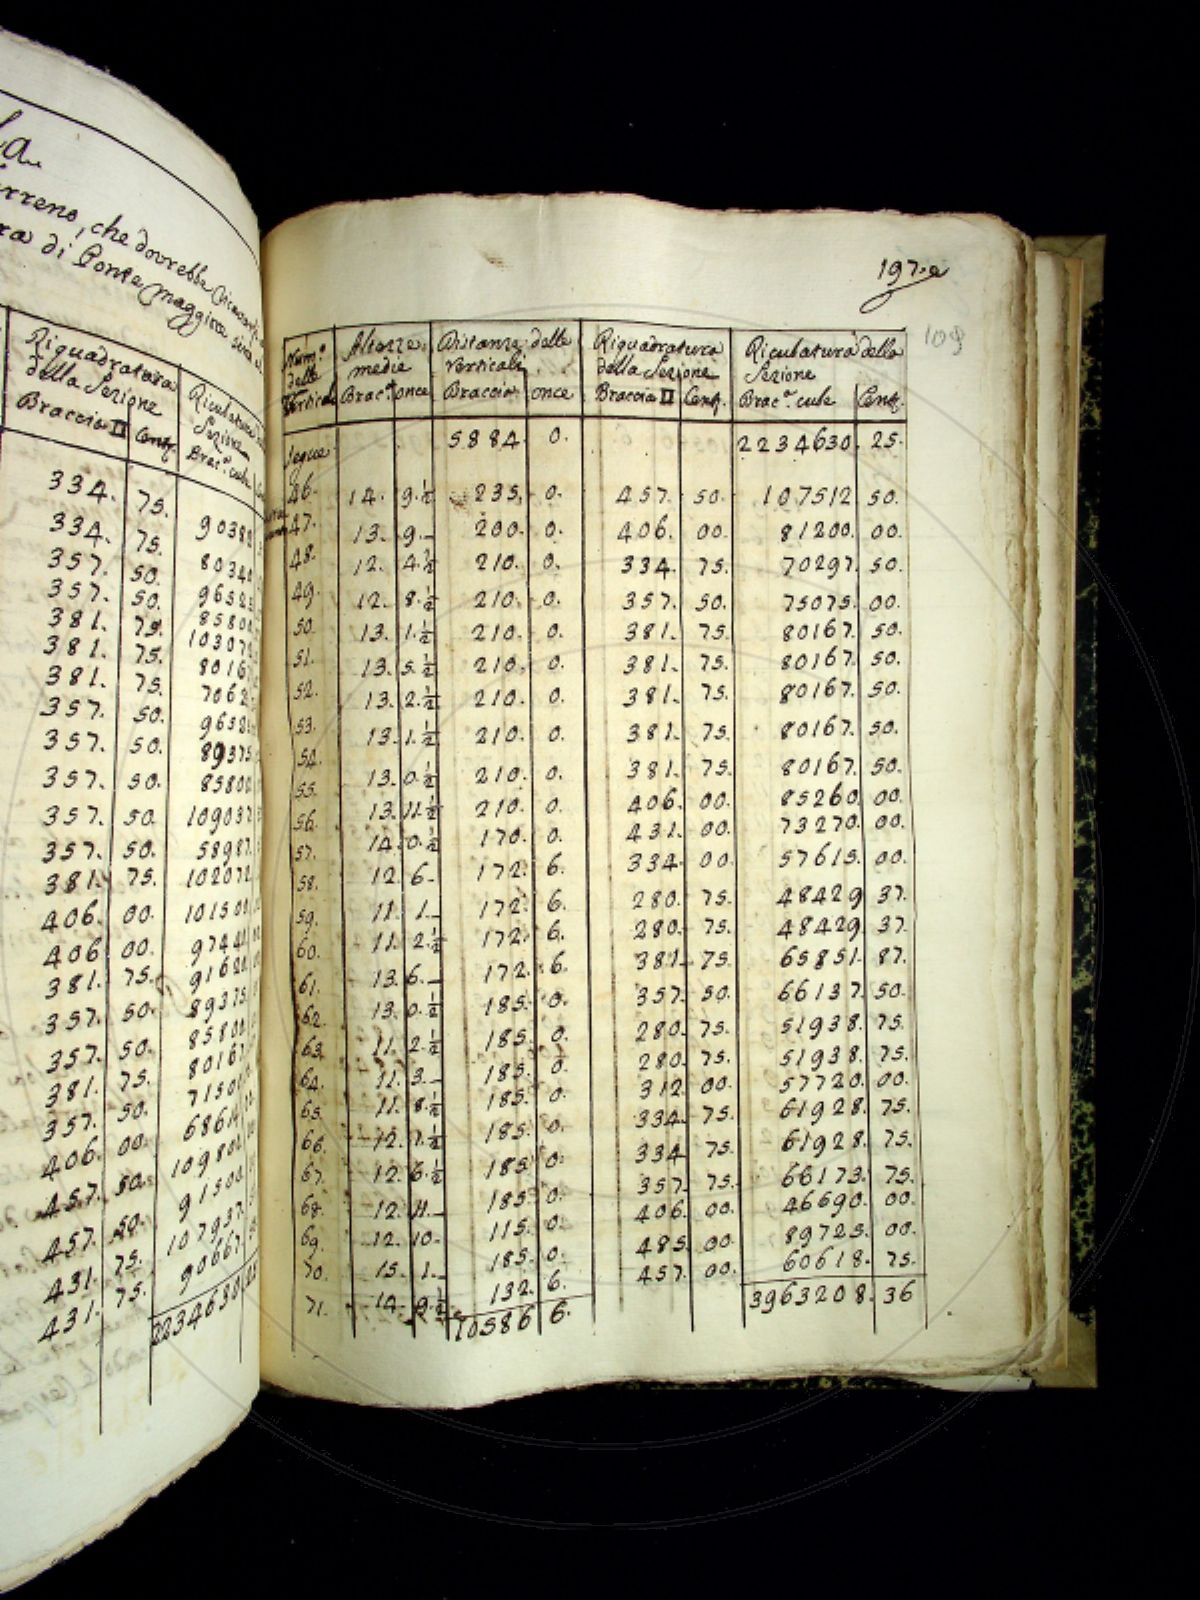 La
terreno, che dovrebbe
di Ponte maggiore sino
Riquadratura
della Sezione
Braccia □ Cent.
Riculatura
Sezione
Brac.ª cube
334. 75. 90382
334. 75. 80340
357. 50. 96525
357. 50. 85800
381. 75. 103072
381. 75. 80167
381. 75. 7062
357. 50. 96525
357. 50. 89375
357. 50. 85800
357. 50. 109037
357. 50. 58987
381. 75. 102072
406. 00. 101500
406 00. 97440
381. 75. 91620
357. 50. 89375
357. 50. 85800
381. 75. 80167
357. 50. 71500
406. 00. 6861
457. 50. 109800
457. 50. 91500
431. 75. 107937
431. 75. 90667
2234630 25
197.
109
Num.º
delle
Verticali
Altezze
medie
Brac.ª once
Distanze delle
verticali
Braccia once
Riquadratura
della Sezione
Braccia □ Cent.
Riculatura della
Sezione
Brac.ª cube Cent.
Segue 5884. 0. 2234630. 25.
46. 14. 9.½ 235. 0. 457. 50. 107512 50.
47. 13. 9._ 200. 0. 406. 00. 81200. 00.
48. 12. 4.½ 210. 0. 334. 75. 70297. 50.
49. 12. 8.½ 210. 0. 357. 50. 75075. 00.
50. 13. 1.½ 210. 0. 381. 75. 80167. 50.
51. 13. 5.½ 210. 0. 381. 75. 80167. 50.
52. 13. 2.½ 210. 0. 381. 75. 80167. 50.
53. 13. 1.½ 210. 0. 381. 75. 80167. 50.
54. 13. 0.½ 210. 0. 381. 75. 80167. 50.
55. 13. 11.½ 210. 0. 406. 00. 85260. 00.
56. 14. 0.½ 170. 0. 431. 00. 73270. 00.
57. 12. 6._ 172. 6. 334. 00. 57615. 00.
58. 11. 1._ 172. 6. 280. 75. 48429 37.
59. 11. 2.½ 172. 6. 280. 75. 48429. 37.
60. 13. 6._ 172. 6. 381. 75. 65851. 87.
61. 13. 0.½ 185. 0. 357. 50. 66137. 50.
62. 11. 2.½ 185. 0. 280. 75. 51938. 75.
63. 11. 3._ 185. 0. 280. 75. 51938. 75.
64. 11. 8.½ 185. 0. 312. 00. 57720. 00.
65. 12. 7.½ 185. 0. 334. 75. 61928. 75.
66. 12. 6.½ 185. 0. 334 75. 61928. 75.
67. 12. 11._ 185. 0. 357. 75. 66173. 75.
68. 12. 10. 115. 0. 406. 00. 46690. 00.
69. 15. 1._ 185. 0. 485. 00. 89725. 00.
70. 14. 9.½ 132. 6. 457. 00. 60618. 75.
71. 10586 6. 3963208. 36